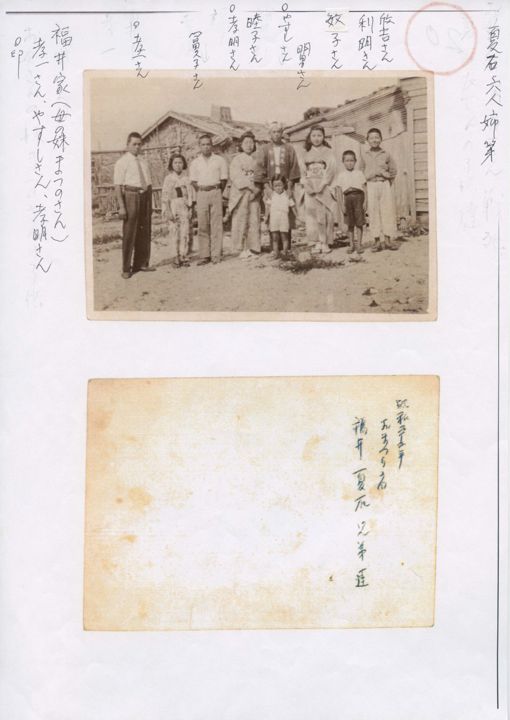 夏石六人姉弟
20
欣吉さん
利明さん
敏子さん
明男さん
○やすしさん
睦子さん
○孝明さん
冨子さん
○孝一さん
福井家(母の妹まつのさん)
孝一さん、やすしさん、孝明さん
○印
おまつりの
福井 夏石 兄弟達